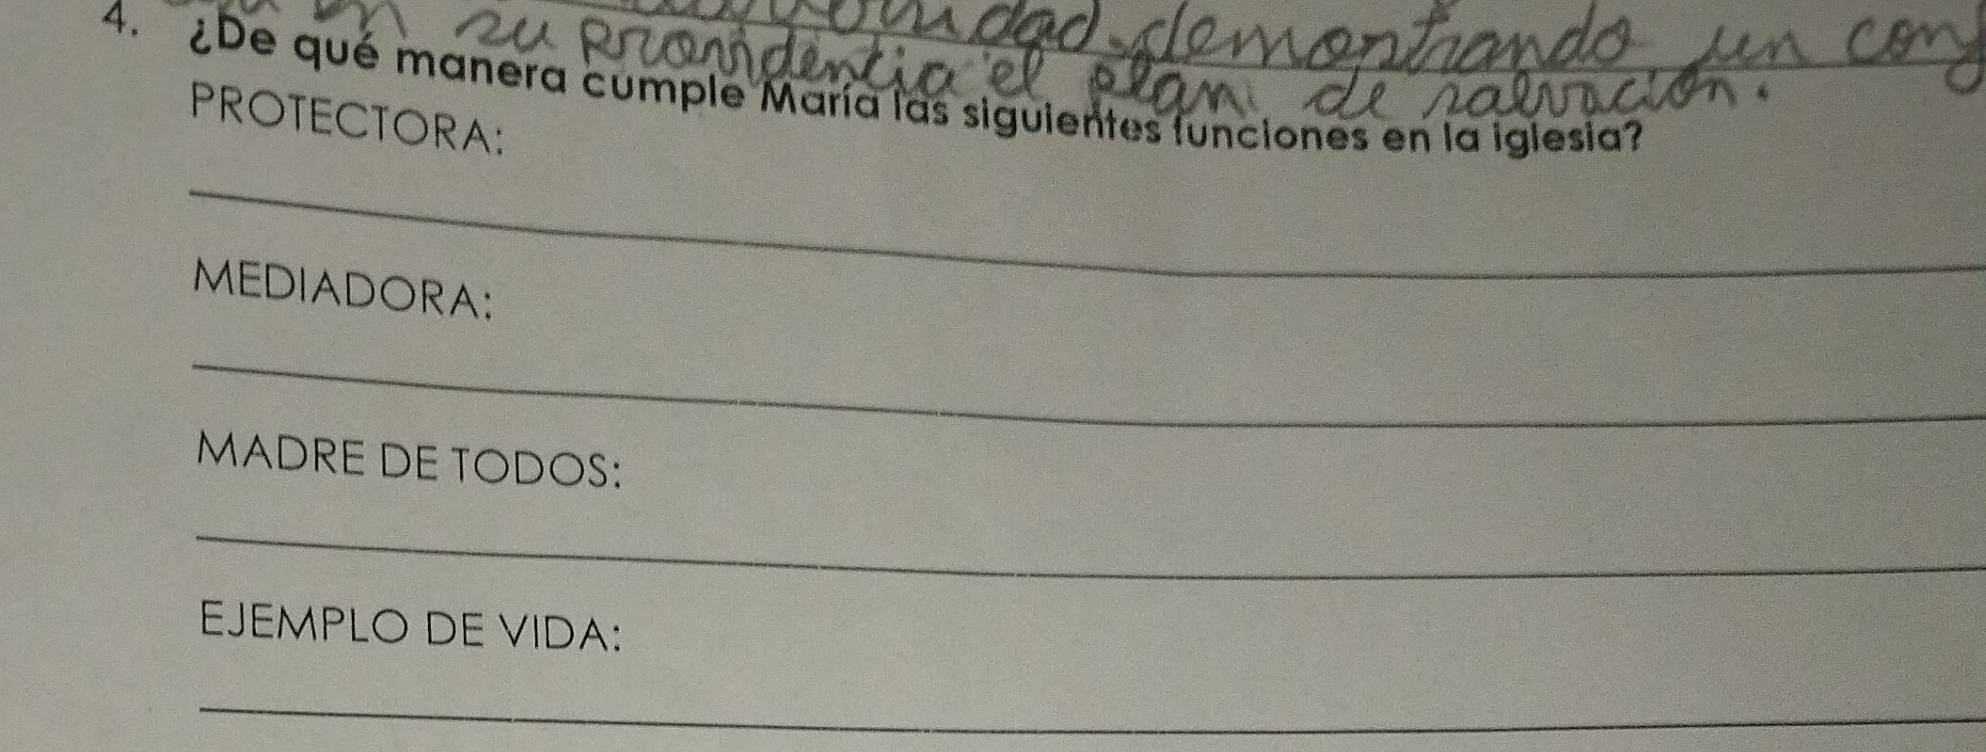 demontrando un con
en su providencia el plan de salvación.
4. ¿De qué manera cumple María las siguientes funciones en la iglesia?
PROTECTORA:
MEDIADORA:
MADRE DE TODOS:
EJEMPLO DE VIDA: